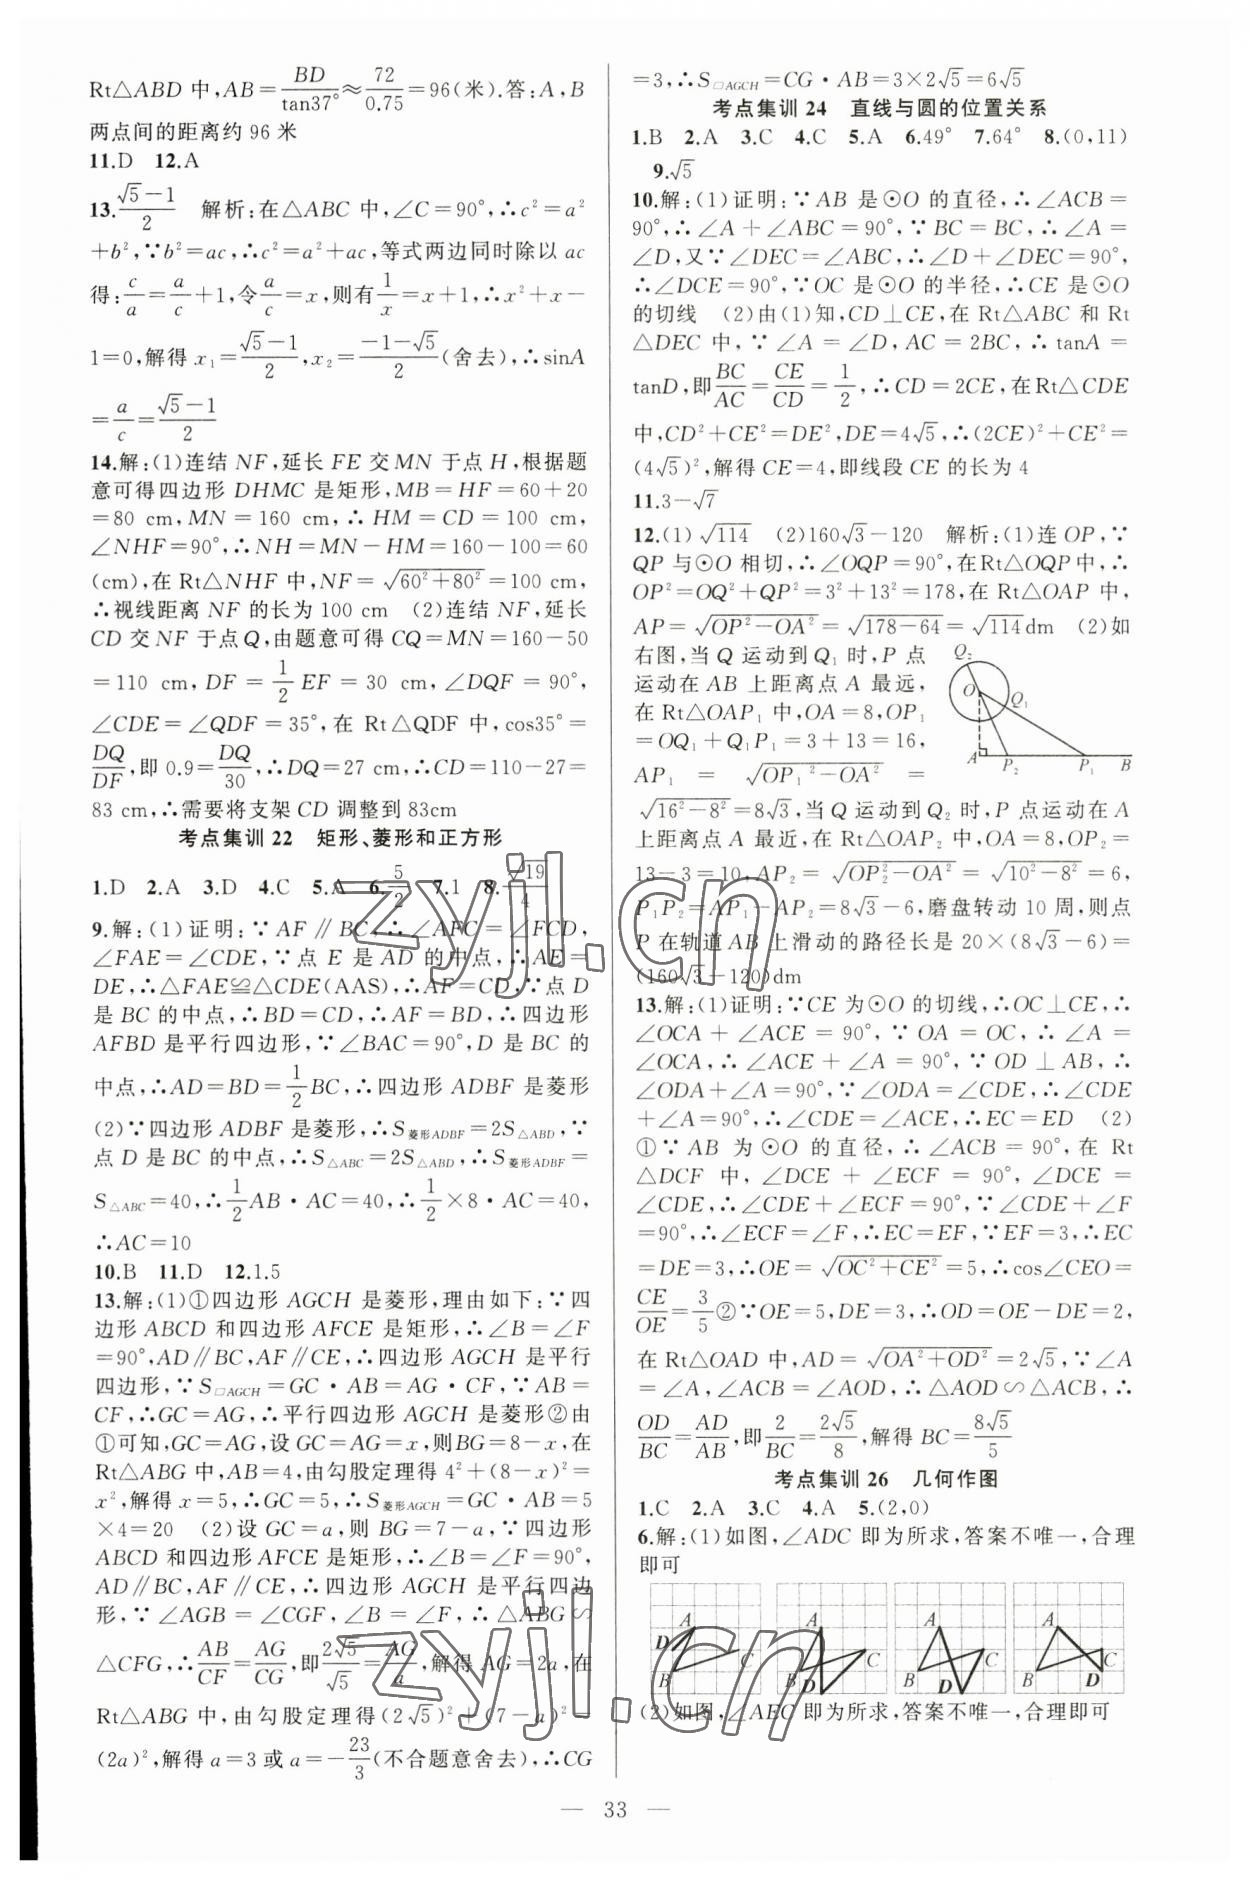 Rt△ABD 中,AB=BD/tan37°≈72/0.75=96(米).答:A,B
两点间的距离约 96 米
11.D 12.A
13.(√5-1)/2 解析:在△ABC 中,∠C=90°,∴c²=a²
+b²,∵b²=ac,∴c²=a²+ac,等式两边同时除以 ac
得:c/a=a/c+1,令a/c=x,则有1/x=x+1,∴x²+x-
1=0,解得 x₁=(√5-1)/2,x₂=(-1-√5)/2(舍去),∴sinA
=a/c=(√5-1)/2
14.解:(1)连结 NF,延长 FE 交 MN 于点 H,根据题
意可得四边形 DHMC 是矩形,MB=HF=60+20
=80 cm,MN=160 cm,∴HM=CD=100 cm,
∠NHF=90°,∴NH=MN-HM=160-100=60
(cm),在 Rt△NHF 中,NF=√(60²+80²)=100 cm,
∴视线距离 NF 的长为 100 cm (2)连结 NF,延长
CD 交 NF 于点 Q,由题意可得 CQ=MN=160-50
=110 cm,DF=1/2 EF=30 cm,∠DQF=90°,
∠CDE=∠QDF=35°,在 Rt△QDF 中,cos35°=
DQ/DF,即 0.9=DQ/30,∴DQ=27 cm,∴CD=110-27=
83 cm,∴需要将支架 CD 调整到 83cm
考点集训 22 矩形、菱形和正方形
1.D 2.A 3.D 4.C 5.A 6.5/2 7.1 8.√19/4
9.解:(1)证明:∵AF∥BC,∴∠AFC=∠FCD,
∠FAE=∠CDE,∵点 E 是 AD 的中点,∴AE=
DE,∴△FAE≌△CDE(AAS),∴AF=CD,∵点 D
是 BC 的中点,∴BD=CD,∴AF=BD,∴四边形
AFBD 是平行四边形,∵∠BAC=90°,D 是 BC 的
中点,∴AD=BD=1/2BC,∴四边形 ADBF 是菱形
(2)∵四边形 ADBF 是菱形,∴S菱形ADBF=2S△ABD,∵
点 D 是 BC 的中点,∴S△ABC=2S△ABD,∴S菱形ADBF=
S△ABC=40,∴1/2AB·AC=40,∴1/2×8·AC=40,
∴AC=10
10.B 11.D 12.1.5
13.解:(1)①四边形 AGCH 是菱形,理由如下:∵四
边形 ABCD 和四边形 AFCE 是矩形,∴∠B=∠F
=90°,AD∥BC,AF∥CE,∴四边形 AGCH 是平行
四边形,∵S□AGCH=GC·AB=AG·CF,∵AB=
CF,∴GC=AG,∴平行四边形 AGCH 是菱形②由
①可知,GC=AG,设 GC=AG=x,则BG=8-x,在
Rt△ABG 中,AB=4,由勾股定理得 4²+(8-x)²=
x²,解得 x=5,∴GC=5,∴S菱形AGCH=GC·AB=5
×4=20 (2)设 GC=a,则 BG=7-a,∵四边形
ABCD 和四边形 AFCE 是矩形,∴∠B=∠F=90°,
AD∥BC,AF∥CE,∴四边形 AGCH 是平行四边
形,∵∠AGB=∠CGF,∠B=∠F,∴△ABG∽
△CFG,∴AB/CF=AG/CG,即2√5/√5=AG/a,解得 AG=2a,在
Rt△ABG 中,由勾股定理得(2√5)²+(7-a)²=
(2a)²,解得 a=3 或 a=-23/3(不合题意舍去),∴CG
=3,∴S□AGCH=CG·AB=3×2√5=6√5
考点集训 24 直线与圆的位置关系
1.B 2.A 3.C 4.C 5.A 6.49° 7.64° 8.(0,11)
9.√5
10.解:(1)证明:∵AB 是⊙O 的直径,∴∠ACB=
90°,∴∠A+∠ABC=90°,∵BC=BC,∴∠A=
∠D,又∵∠DEC=∠ABC,∴∠D+∠DEC=90°,
∴∠DCE=90°,∵OC 是⊙O 的半径,∴CE 是⊙O
的切线 (2)由(1)知,CD⊥CE,在 Rt△ABC 和 Rt
△DEC 中,∵∠A=∠D,AC=2BC,∴tanA=
tanD,即BC/AC=CE/CD=1/2,∴CD=2CE,在 Rt△CDE
中,CD²+CE²=DE²,DE=4√5,∴(2CE)²+CE²=
(4√5)²,解得 CE=4,即线段 CE 的长为 4
11.3-√7
12.(1)√114 (2)160√3-120 解析:(1)连 OP,∵
QP 与⊙O 相切,∴∠OQP=90°,在Rt△OQP 中,∴
OP²=OQ²+QP²=3²+13²=178,在 Rt△OAP 中,
AP=√(OP²-OA²)=√(178-64)=√114 dm (2)如
右图,当 Q 运动到 Q₁ 时,P 点
运动在 AB 上距离点 A 最远,
在 Rt△OAP₁ 中,OA=8,OP₁
=OQ₁+Q₁P₁=3+13=16,
AP₁ = √(OP₁²-OA²) =
√(16²-8²)=8√3,当 Q 运动到 Q₂ 时,P 点运动在 A
上距离点 A 最近,在 Rt△OAP₂ 中,OA=8,OP₂=
13-3=10,AP₂=√(OP₂²-OA²)=√(10²-8²)=6,
P₁P₂=AP₁-AP₂=8√3-6,磨盘转动 10 周,则点
P 在轨道 AB 上滑动的路径长是 20×(8√3-6)=
(160√3-120)dm
Q₂
O
Q₁
A P₂ P₁ B
13.解:(1)证明:∵CE 为⊙O 的切线,∴OC⊥CE,∴
∠OCA+∠ACE=90°,∵OA=OC,∴∠A=
∠OCA,∴∠ACE+∠A=90°,∵OD⊥AB,∴
∠ODA+∠A=90°,∵∠ODA=∠CDE,∴∠CDE
+∠A=90°,∴∠CDE=∠ACE,∴EC=ED (2)
①∵AB 为⊙O 的直径,∴∠ACB=90°,在 Rt
△DCF 中,∠DCE+∠ECF=90°,∠DCE=
∠CDE,∴∠CDE+∠ECF=90°,∵∠CDE+∠F
=90°,∴∠ECF=∠F,∴EC=EF,∵EF=3,∴EC
=DE=3,∴OE=√(OC²+CE²)=5,∴cos∠CEO=
CE/OE=3/5②∵OE=5,DE=3,∴OD=OE-DE=2,
在 Rt△OAD 中,AD=√(OA²+OD²)=2√5,∵∠A
=∠A,∠ACB=∠AOD,∴△AOD∽△ACB,∴
OD/BC=AD/AB,即2/BC=2√5/8,解得 BC=8√5/5
考点集训 26 几何作图
1.C 2.A 3.C 4.A 5.(2,0)
6.解:(1)如图,∠ADC 即为所求,答案不唯一,合理
即可
A D B C
A B D C
A B D C
A B D C
(2)如图,∠AEC 即为所求,答案不唯一,合理即可
— 33 —
zyjl.cn
zyjl.cn